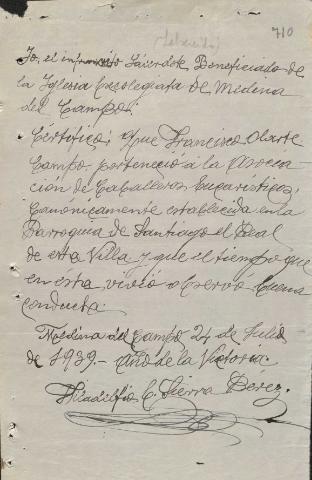 710
Yo, el infrascrito Sacerdote, Beneficiado de
la Iglesia Excolegiata de Medina
del Campo:
Certifico: Que Francisco Olarte
Campo perteneció á la Asocia-
ción de Caballeros Eucarísticos,
canónicamente establecida en la
Parroquia de Santiago el Real
de esta Villa y que el tiempo que
en esta vivió observó buena
conducta.
Medina del Campo 24 de Julio
de 1939.- Año de la Victoria.
Filadelfio C. Sierra Pérez.